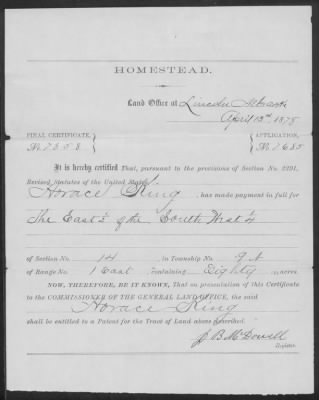 HOMESTEAD.
Land Office at Lincoln Nebraska
April 13th, 1875
FINAL CERTIFICATE, APPLICATION,
No. 1353 No. 7685
It is hereby certified That, pursuant to the provisions of Section No. 2291,
Revised Statutes of the United States
Horace King, has made payment in full for
The East ½ of the South West ¼
of Section No. 14 in Township No. 9 N
of Range No. 1 East Containing Eighty acres
NOW, THEREFORE, BE IT KNOWN, That on presentation of this Certificate
to the COMMISSIONER OF THE GENERAL LAND OFFICE, the said
Horace King
shall be entitled to a Patent for the Tract of Land above described.
J B McDowell
Register.